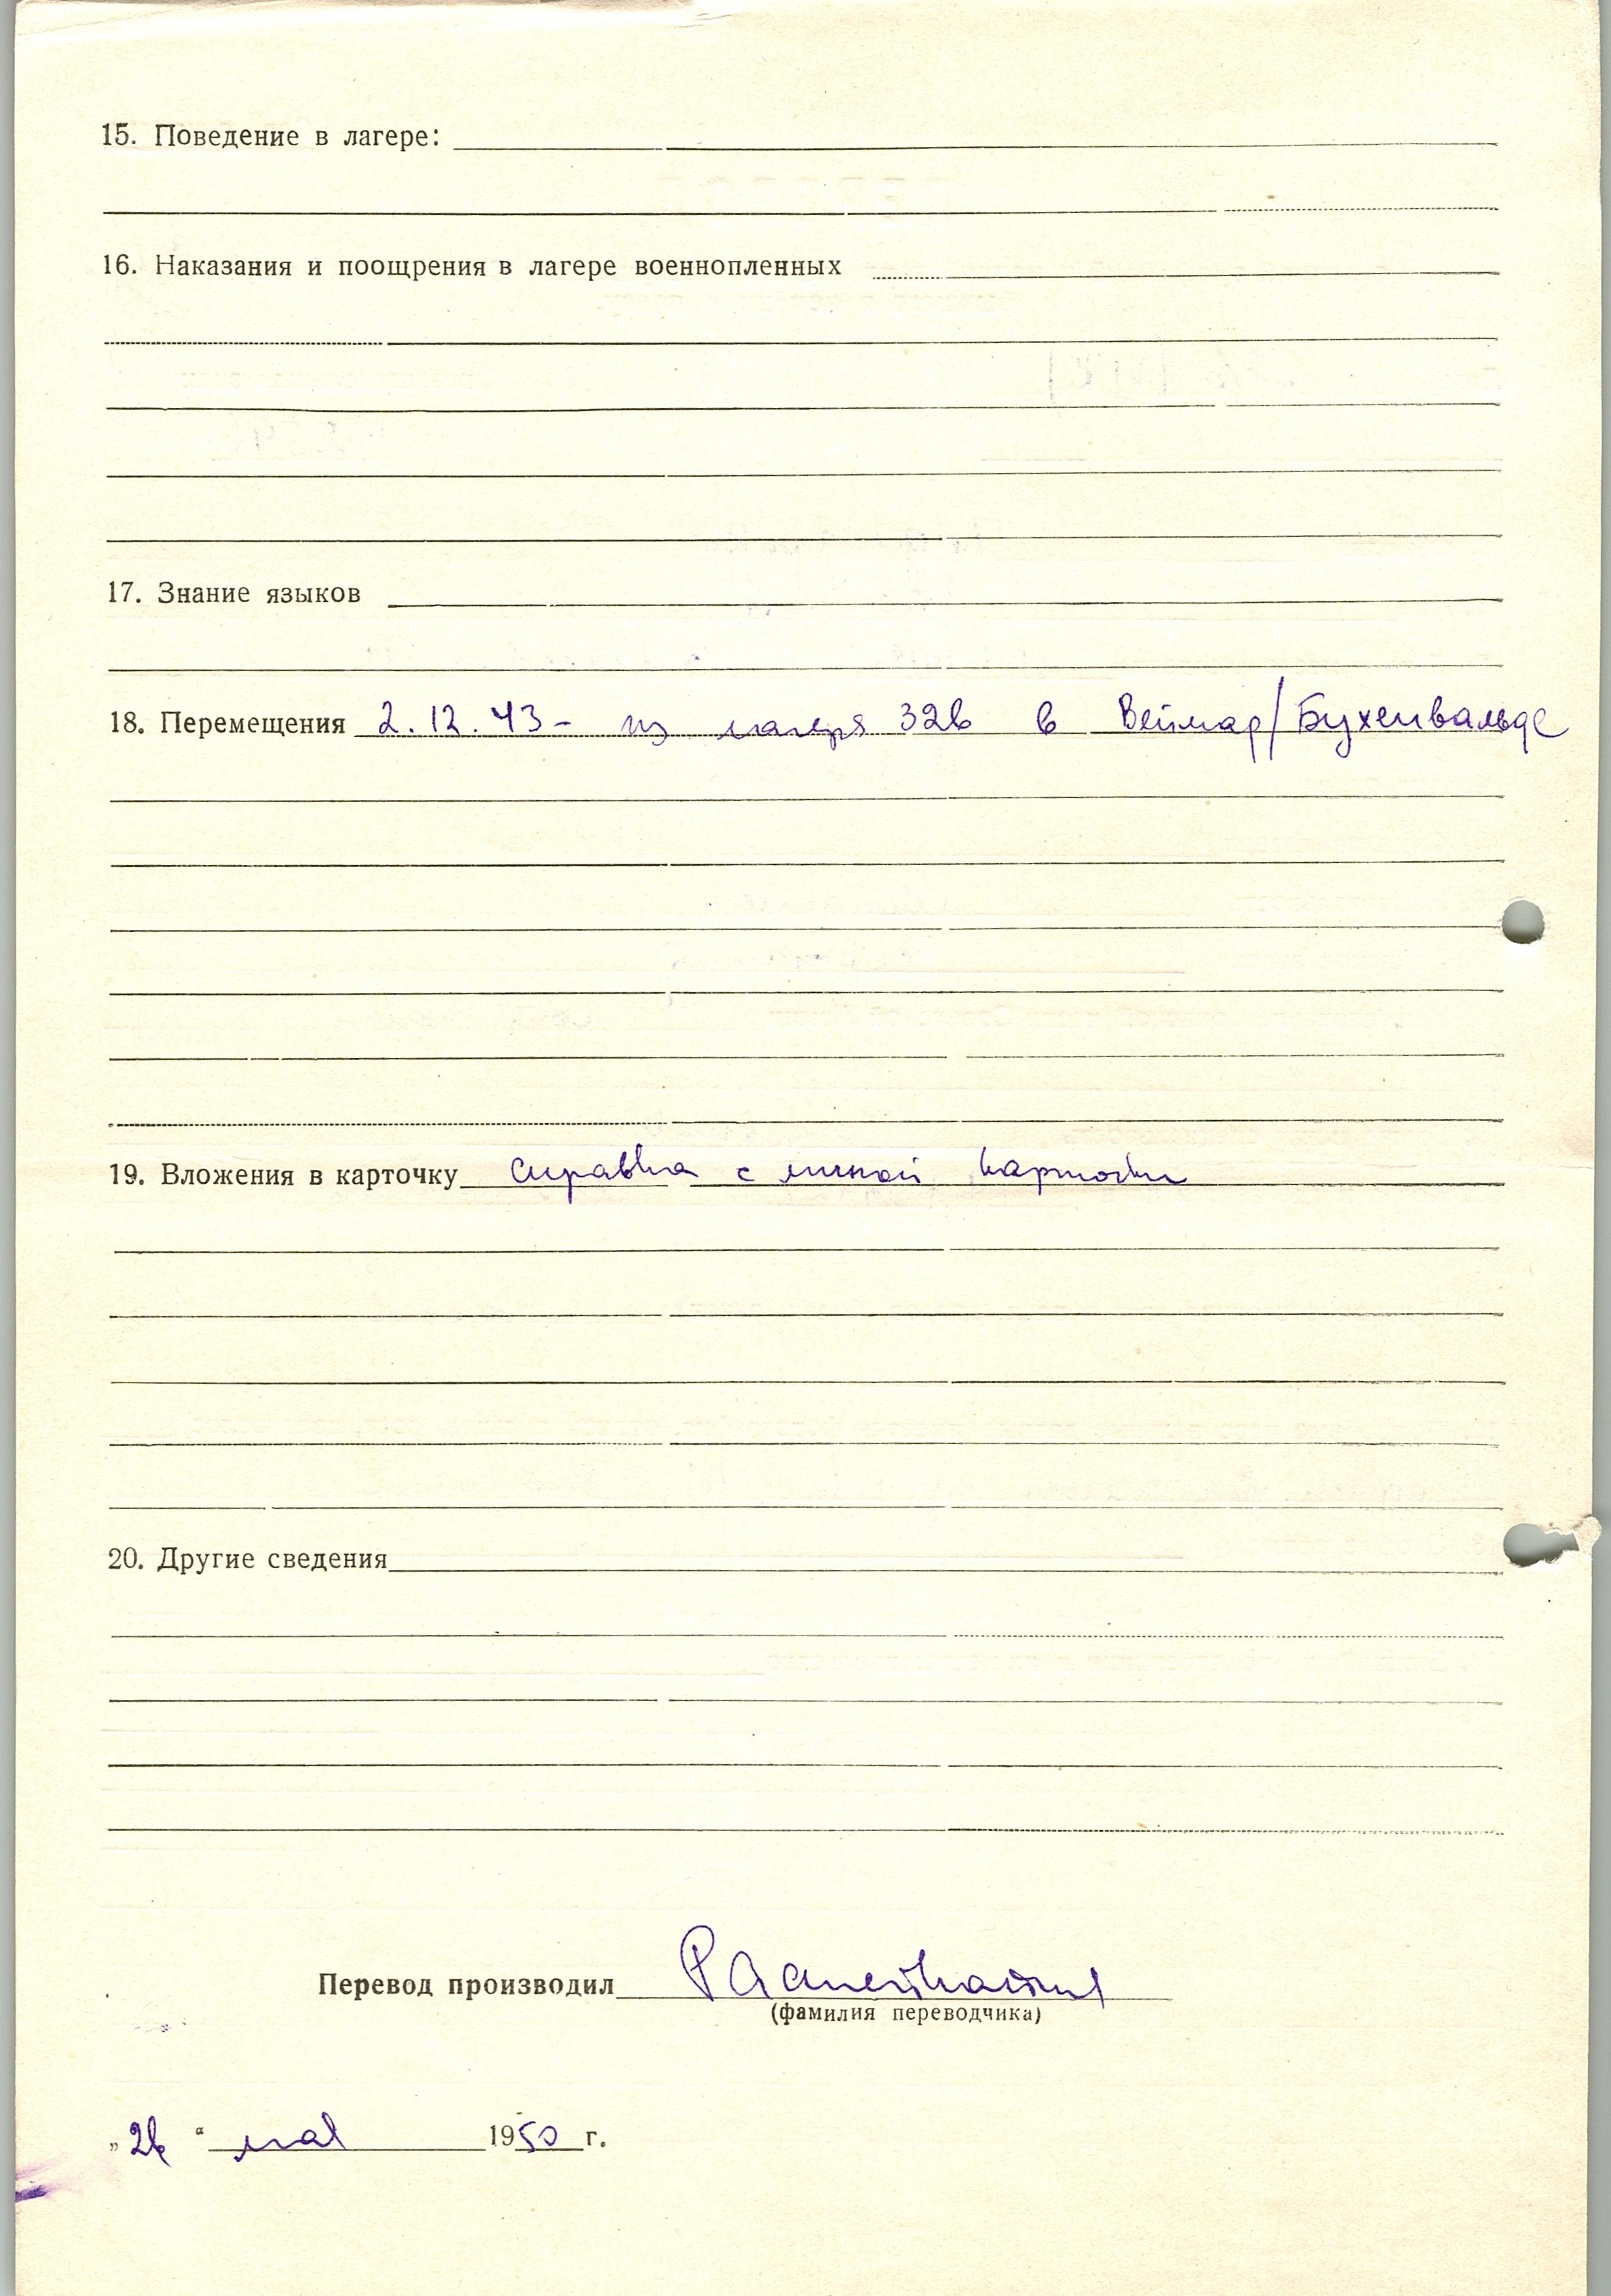 15. Поведение в лагере:
16. Наказания и поощрения в лагере военнопленных
17. Знание языков
18. Перемещения 2.12.43 – из лагеря 326 в Веймар/Бухенвальде
19. Вложения в карточку справка с личной карточки
20. Другие сведения
Перевод производил
(фамилия переводчика)
„26“ мая 1950 г.